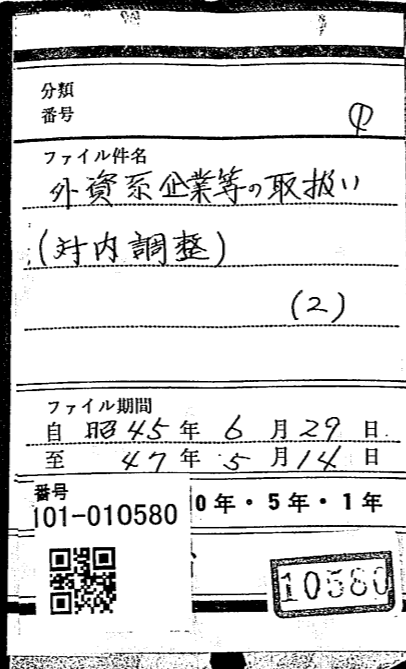 分類
番号
ファイル件名
外資系企業等の取扱い
(対内調整)
(2)
ファイル期間
自 昭45年 6月29日
至 47年 5月14日
番号
101-010580
0年・5年・1年
10580